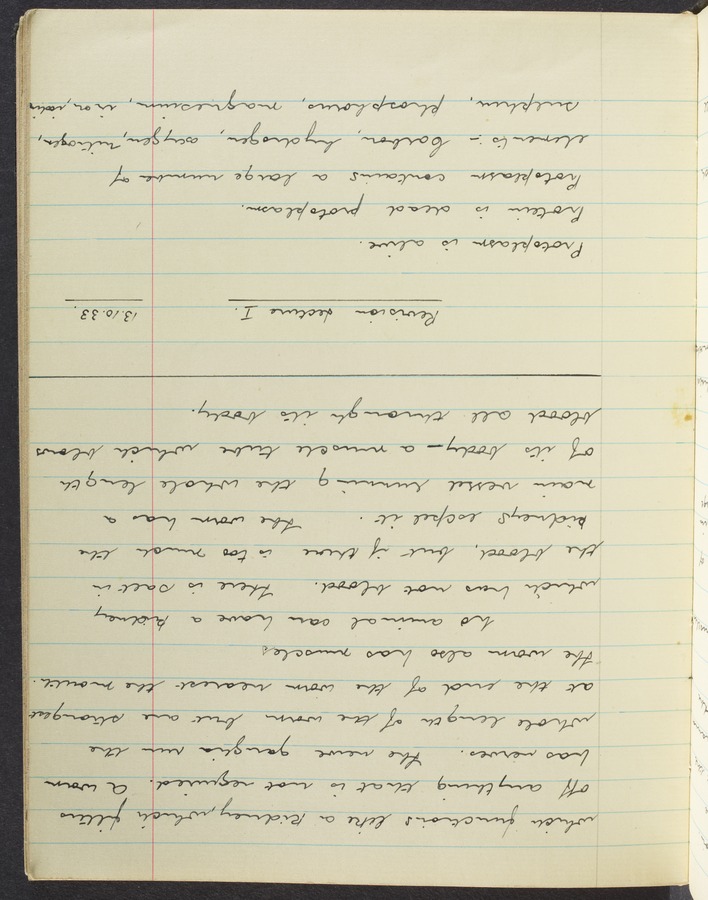 which functions like a kidney, which filters
off anything that is not required. A worm
has nerves. The nerve ganglia run the
whole length of the worm but are strongest
at the end of the worm nearest the mouth.
The worm also has muscles
No animal can have a kidney
which has not blood. There is salt in
the blood, but if there is too much the
kidneys expel it. The worm has a
main vessel running the whole length
of its body — a muscle tube which blows
blood all through its body.
Revision Lecture I. 13.10.33.
Protoplasm is alive.
Protein is dead protoplasm.
Protoplasm contains a large number of
elements :- Carbon, hydrogen, oxygen, nitrogen,
sulphur, phosphorus, magnesium, iron,